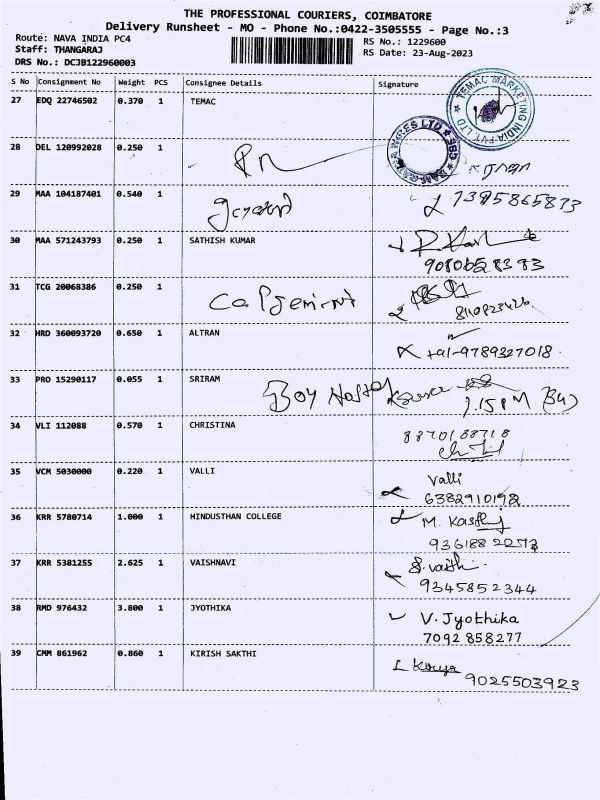 THE PROFESSIONAL COURIERS, COIMBATORE
Delivery Runsheet - MO - Phone No.:0422-3505555 - Page No.:3
Route: NAVA INDIA PC4
RS No.: 1229600
Staff: THANGARAJ
RS Date: 23-Aug-2023
DRS No.: DCJB122960003
S No Consignment No Weight PCS Consignee Details Signature
TEMAC MARKETING INDIA PVT LTD
27 EDQ 22746502 0.370 1 TEMAC
28 DEL 120992028 0.250 1
29 MAA 104187401 0.540 1
30 MAA 571243793 0.250 1 SATHISH KUMAR
9080658383
31 TCG 20068386 0.250 1 Capgemini
32 HRD 360093720 0.650 1 ALTRAN
+91-9789327018
33 PRO 15290117 0.055 1 SRIRAM Boy Hostel
7.15 PM
34 VLI 112088 0.570 1 CHRISTINA
8870188718
35 VCM 5030000 0.220 1 VALLI
Valli
6382910192
36 KRR 5780714 1.000 1 HINDUSTHAN COLLEGE
M.
37 KRR 5381255 2.625 1 VAISHNAVI
9345852344
38 RMD 976432 3.800 1 JYOTHIKA
V. Jyothika
7092858277
39 CMM 861962 0.860 1 KIRISH SAKTHI
9025503923